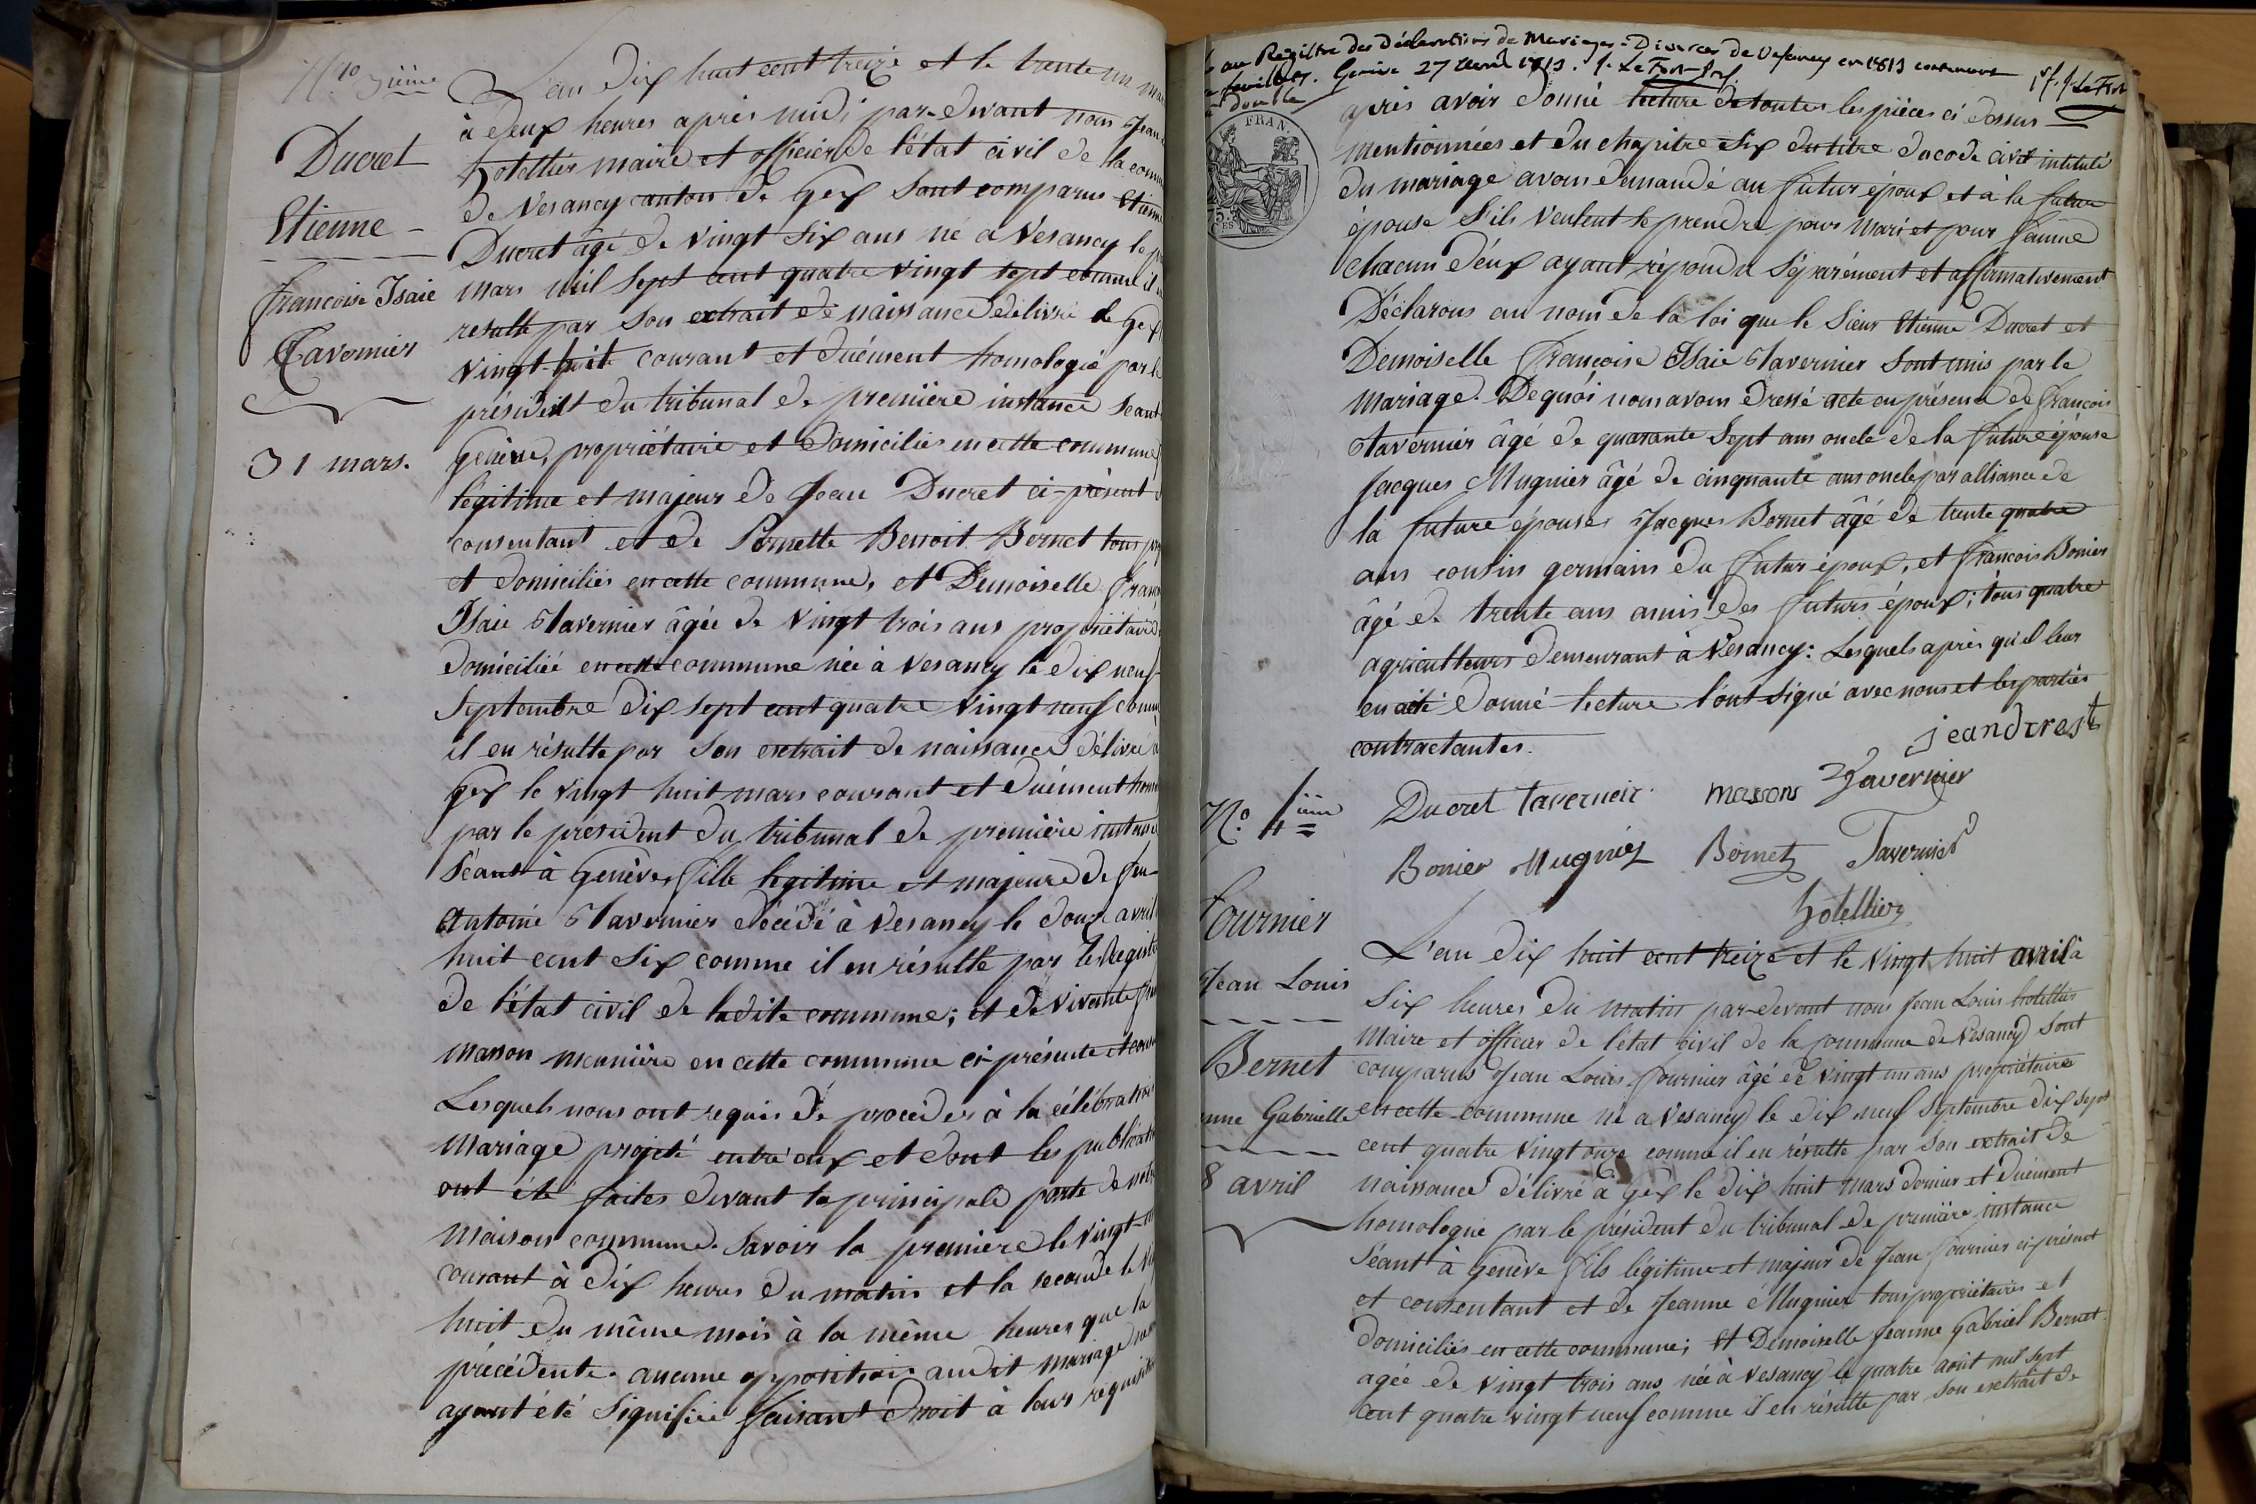 N.o 3ième
Ducret
Etienne
Francoise Isaie
Tavernier
31 mars.
L'an dix huit cent treize et le trente un
à deux heures après midi par-devant nous Jean
hotellier maire et officier de l'état civil de la
de Vesancy canton de Gex sont comparus Etienne
Ducret âgé de vingt six ans né a Vésancy le
mars mil sept cent quatre vingt sept comme il
resulte par son extrait de naissance délivré de Gex
vingt-huit courant et duément homologié par le
président du tribunal de première instance séant
Genève, propriétaire et domicilié en cette commune
légitime et majeur de Jean Ducret ci-présent
consentant et de Pernette Benoit Bernet tous
et domiciliés en cette commune, et Demoiselle
Isaie Tavernier âgée de vingt trois ans propriétaire
domiciliée en cette commune née à Vesancy le dix neuf
Septembre dix sept cent quatre vingt neuf
il en résulte par son extrait de naissance délivré
Gex le vingt huit mars courant et duément
par le président du tribunal de première
séant à Genève, fille légitime et majeure de feu
Antoine Tavernier décédé à Vesancy le douze avril
huit cent six comme il en résulte par le
de l'état civil de ladite commune; et de vivante
masson meunière en cette commune ci-présente
Lesquels nous ont requis de procéder à la célébration
mariage projeté entre eux et dont les
ont été faites devant la principale porte de
maison commune. Savoir la première le vingt
courant à dix heures du matin et la seconde le
huit du même mois à la même heures que la
précédente. aucune opposition audit mariage
ayant été signifiée faisant droit à leur
au Registre des Déclarations de Mariages Divorces de Vesancy en 1813 contenant
feuillets. Genève 27 1813. Le Fort
double
1er f. Le Fort
FRAN.
après avoir donné lecture de toutes les pièces ci dessus
mentionnées et du chapitre six du titre du code civil intitulé
du mariage avons demandé au futur époux et à la future
épouse s'ils veulent se prendre pour mari et pour femme
chacun d'eux ayant répondu séparément et affirmativement
Déclarons au nom de la loi que le Sieur Etienne Ducret et
Demoiselle Francoise Isaie Tavernier sont unis par le
mariage. De quoi nous avons dressé acte en présence de François
Tavernier âgé de quarante sept ans oncle de la future épouse
Jacques Mugnier âgé de cinquante ans oncle par alliance de
la future épouse, Jacques Bornet âgé de trente quatre
ans cousin germain du futur époux, et François Bonier
âgé de trente ans amis des futurs époux; tous quatre
agriculteurs demeurant à Vesancy: Lesquels après qu'il leur
en a été donné lecture l'ont signé avec nous et les parties
contractantes.
Ducret Masson Tavernier
Bonier Mugnier Bornet Tavernier
hotellier
N.o 4ième
Fournier
Jean Louis
Bernet
Gabrielle
8 avril
L'an dix huit cent treize et le vingt huit avril à
six heures du matin par-devant nous Jean Louis hotellier
Maire et officier de l'état civil de la commune de Vesancy sont
comparus Jean Louis Fournier âgé de vingt un ans propriétaire
en cette commune né a Vesancy le dix neuf septembre dix sept
cent quatre vingt onze comme il en résulte par son extrait de
naissance délivré à Gex le dix huit mars dernier et duément
homologué par le président du tribunal de première instance
séant à Genève fils légitime et majeur de Jean Fournier ci-présent
et consentant et de Jeanne Mugnier tous propriétaires et
domiciliés en cette commune; et Demoiselle Jeanne Gabriel Bernet
agée de vingt trois ans, née à Vesancy le quatre août mil sept
cent quatre vingt neuf comme il en résulte par son extrait de